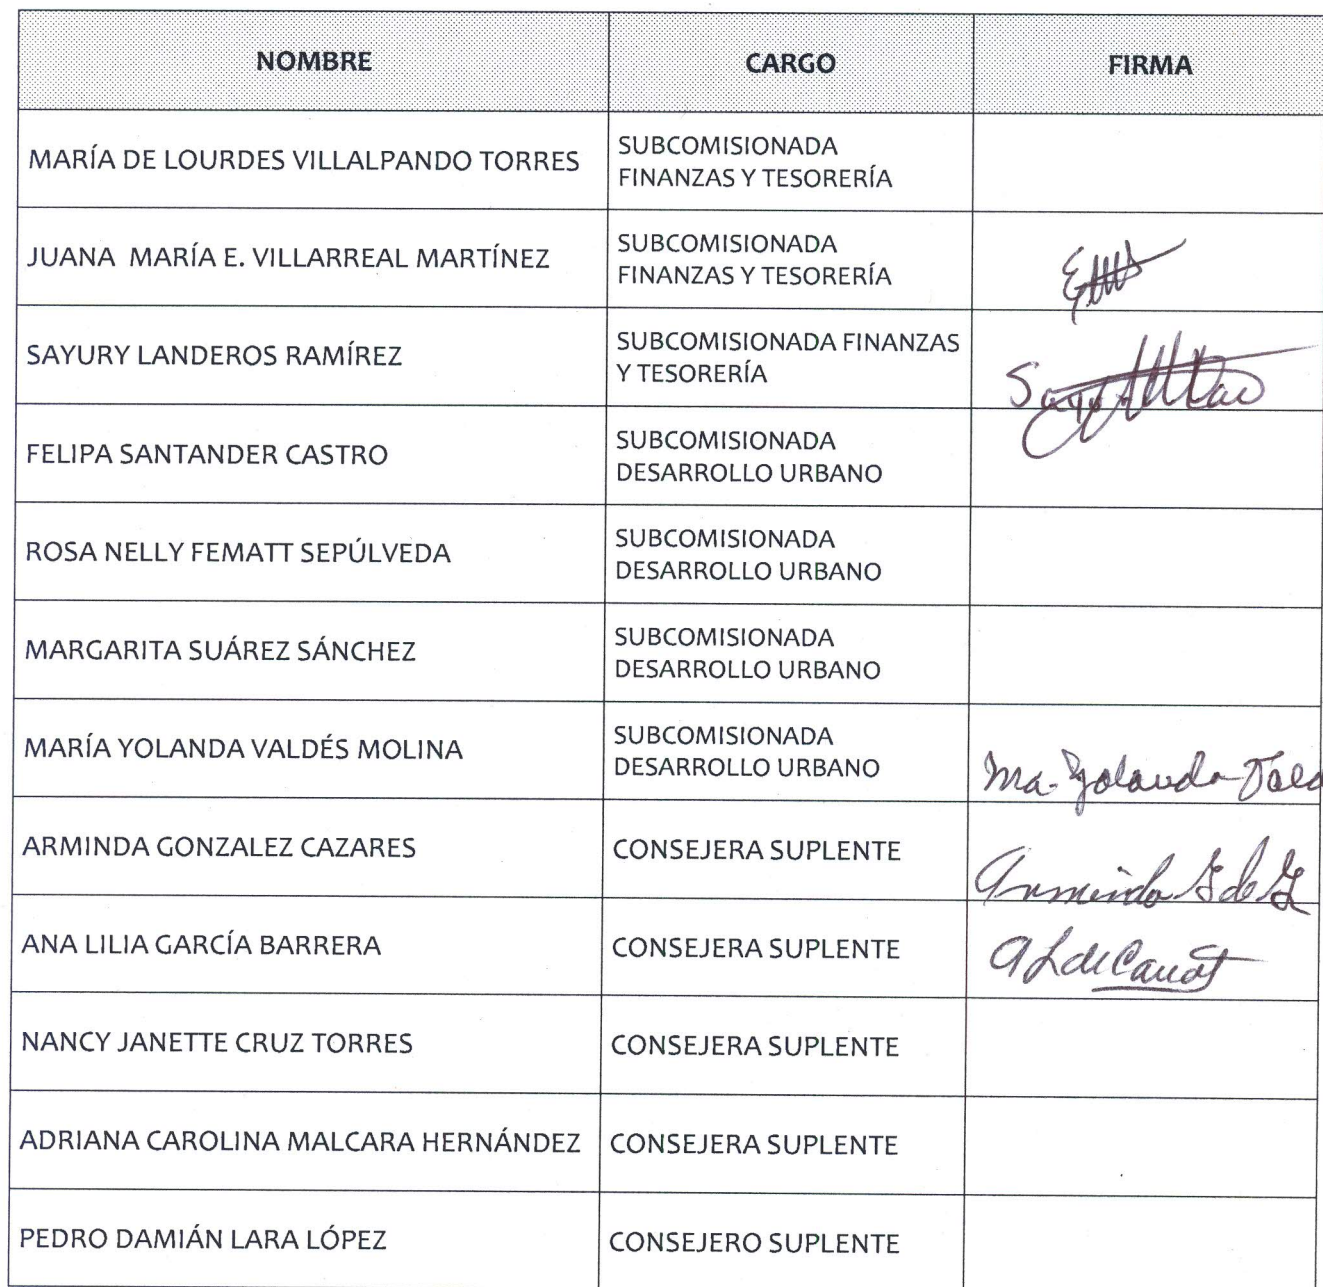 NOMBRE CARGO FIRMA
MARÍA DE LOURDES VILLALPANDO TORRES
SUBCOMISIONADA
FINANZAS Y TESORERÍA
JUANA MARÍA E. VILLARREAL MARTÍNEZ
SUBCOMISIONADA
FINANZAS Y TESORERÍA
SAYURY LANDEROS RAMÍREZ
SUBCOMISIONADA FINANZAS
Y TESORERÍA
FELIPA SANTANDER CASTRO
SUBCOMISIONADA
DESARROLLO URBANO
ROSA NELLY FEMATT SEPÚLVEDA
SUBCOMISIONADA
DESARROLLO URBANO
MARGARITA SUÁREZ SÁNCHEZ
SUBCOMISIONADA
DESARROLLO URBANO
MARÍA YOLANDA VALDÉS MOLINA
SUBCOMISIONADA
DESARROLLO URBANO
Ma. Yolanda
ARMINDA GONZALEZ CAZARES CONSEJERA SUPLENTE Arminda G de G
ANA LILIA GARCÍA BARRERA CONSEJERA SUPLENTE
NANCY JANETTE CRUZ TORRES CONSEJERA SUPLENTE
ADRIANA CAROLINA MALCARA HERNÁNDEZ CONSEJERA SUPLENTE
PEDRO DAMIÁN LARA LÓPEZ CONSEJERO SUPLENTE